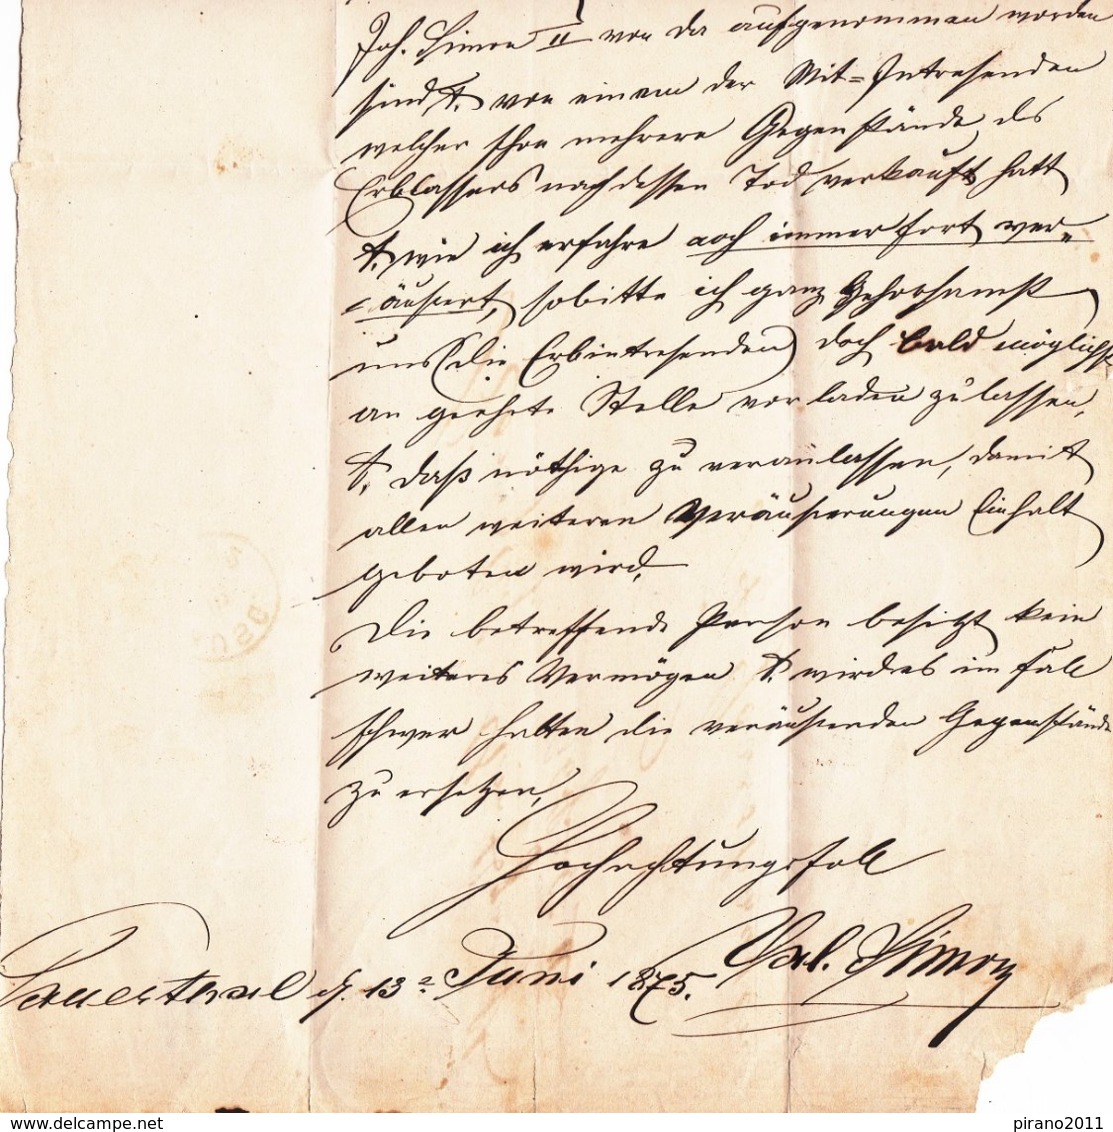 Joh. Simon II von da aufgenommen worden
sind, u. von einem der Mit=Intresenden
welcher schon mehrere Gegenstände des
Erblassers nach dessen Tod verkauft hatt
u. wie ich erfahre noch immerfort ver=
äusert, so bitte ich ganz Gehorsamst
uns (die Erbintresenden) doch bald möglichst
an geehrte Stelle vorladen zu lassen,
u. daß nöthige zu veranlassen, damit
allen weiteren Veräuserungen Einhalt
geboten wird.
Die betreffende Person besitzt kein
weiteres Vermögen u. wird es im Fall
schwer halten die veräusenden Gegenstände
zu ersetzen,
Hochachtungsfoll
Sauerthal d. 13ᵗ Juni 1875. Val. Simon
www.delcampe.net
pirano2011